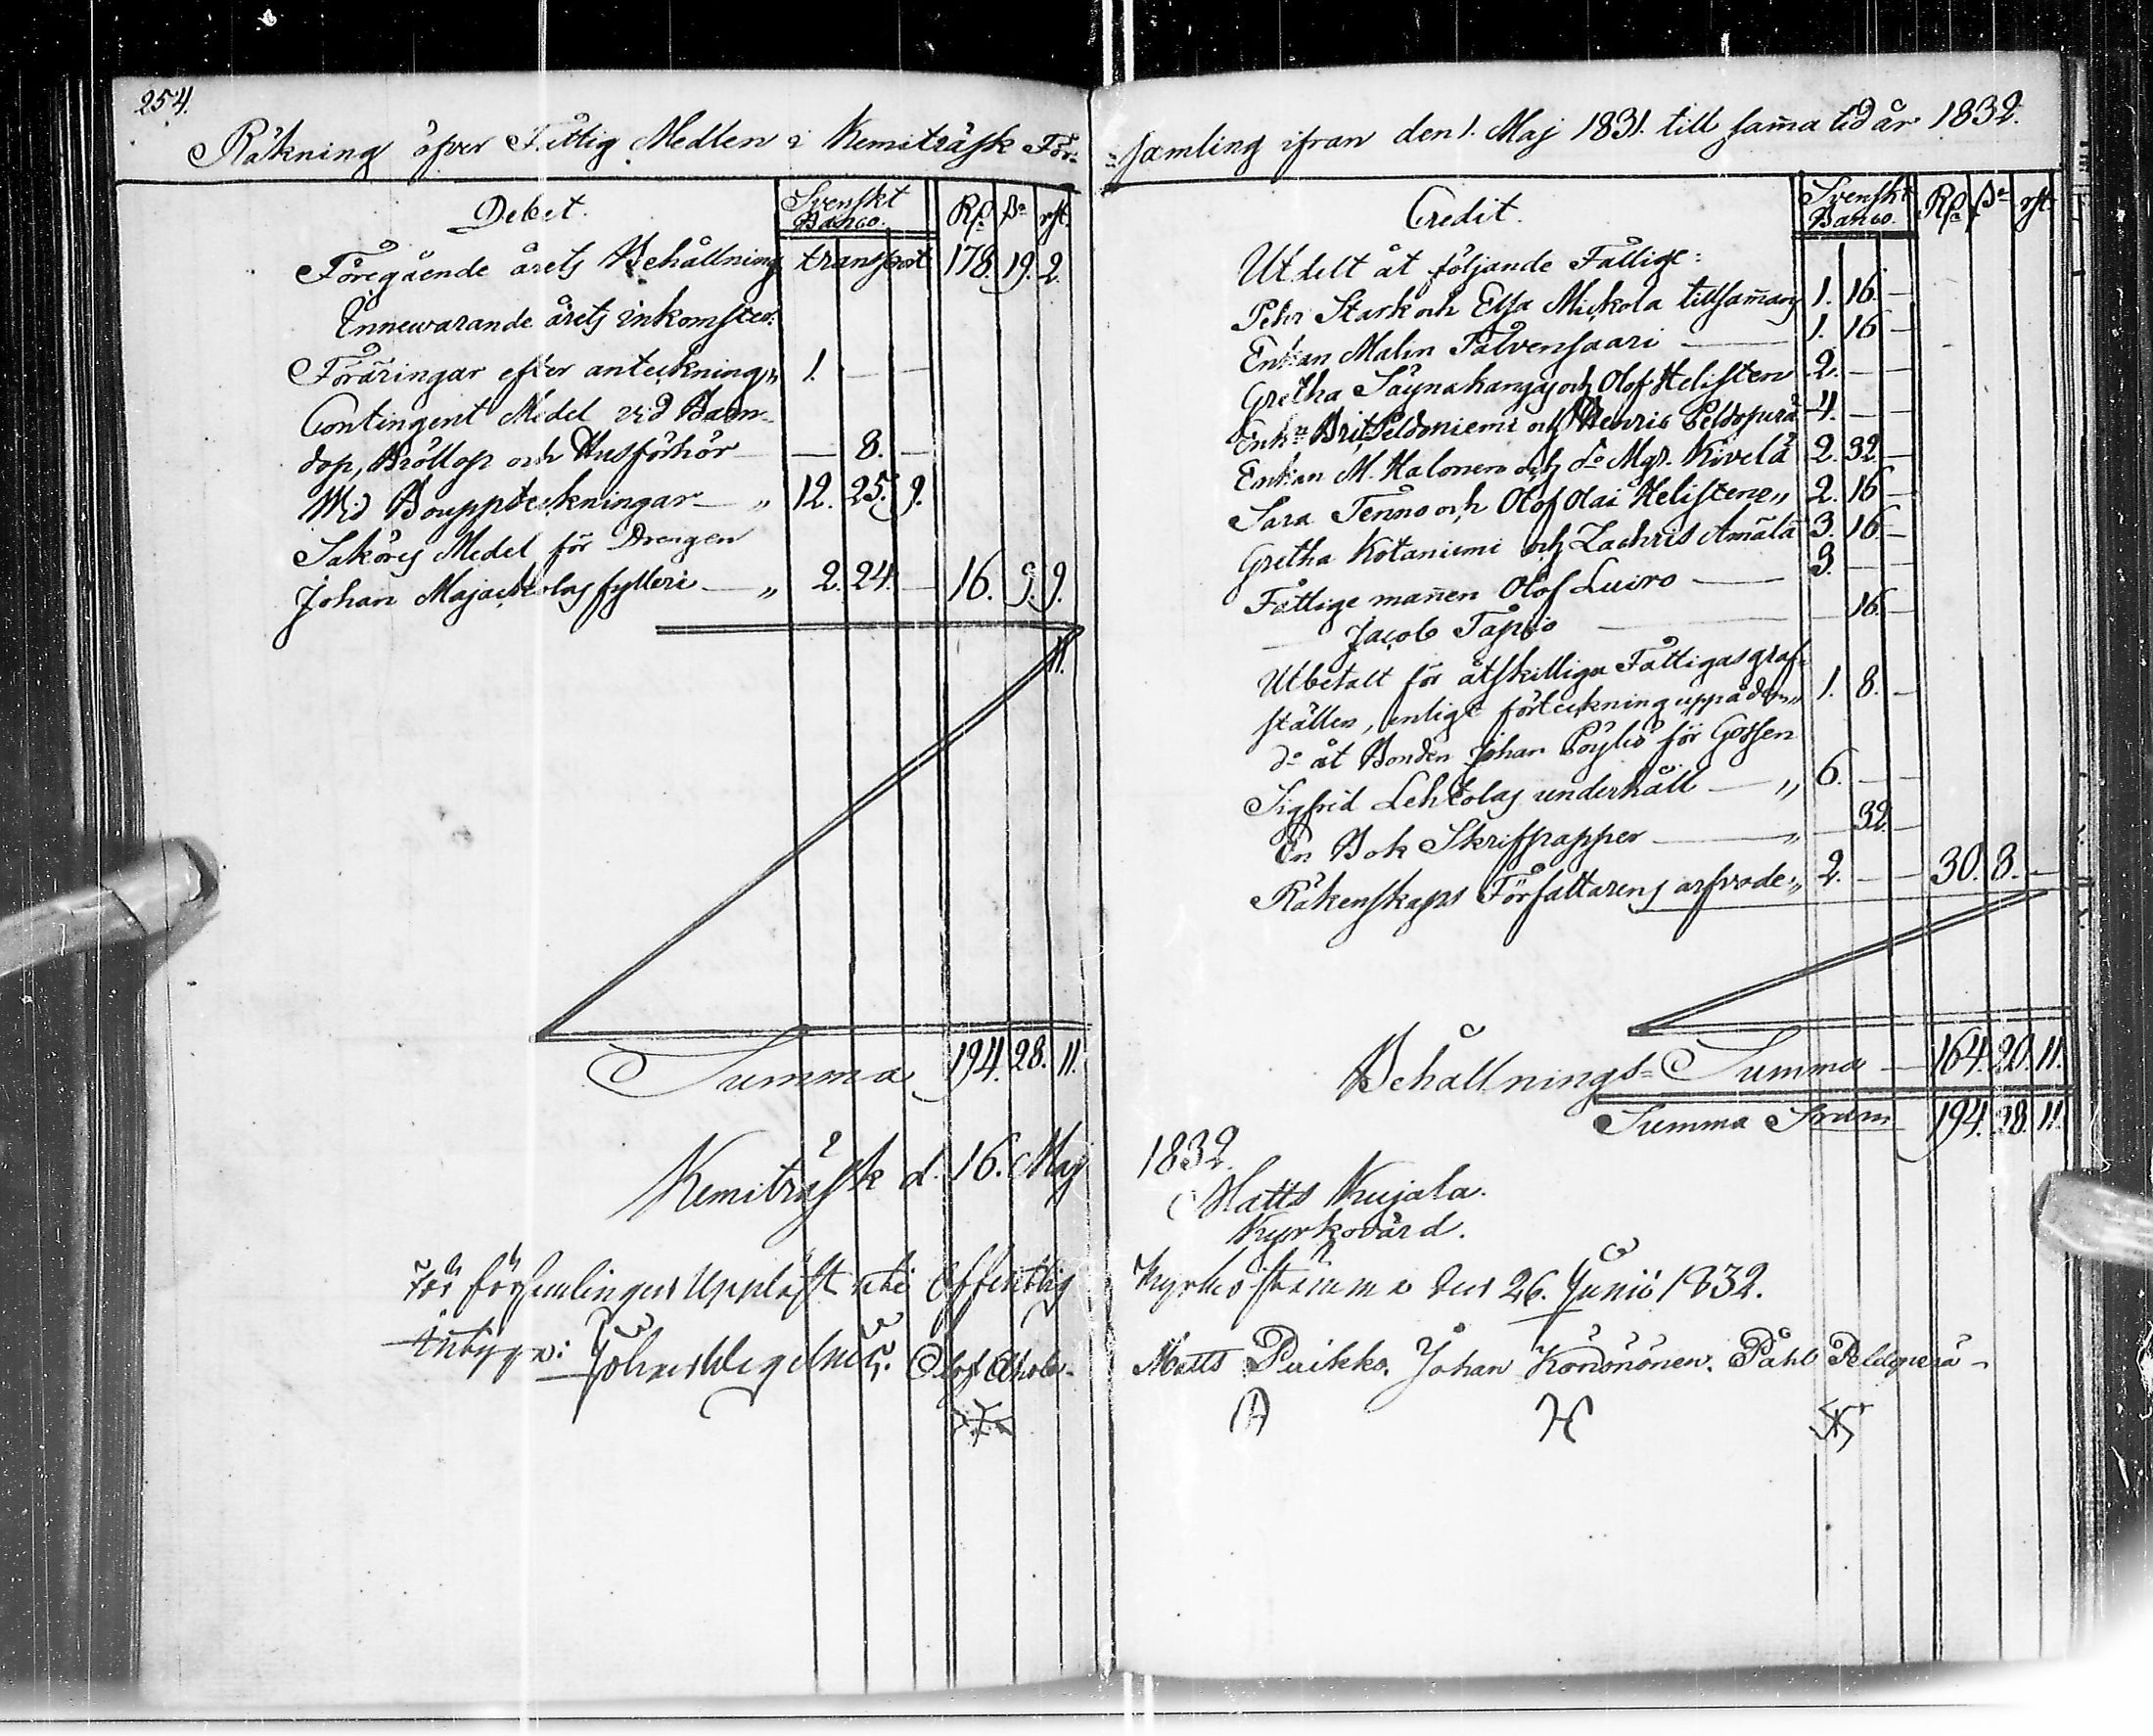 254.
Räkning öfver Fattig Medlen i Kemiträsk För-
Debet. Svenskt Banco. Rd s rst.
Föregående årets Behållning transport 178. 19. 2.
Innewarande årets inkomster:
Föräringar efter anteckning „ 1. — —
Contingent Medel vid Barn-
dop, Bröllop och Husförhör — 8. —
Wid Bouppteckningar — „ 12. 25. 9.
Saköres Medel för Drengen
Johan Majavholas fylleri — „ 2. 24. — 16. 9. 9.
11.
Summa 194. 28. 11.
Kemiträsk d. 16. Maj
För församlingen Uppläst uti Offentlig
Intyga: Johan Wegelius. Olof Ahola.
=samling ifran den 1. Maj 1831. till sama tid år 1832.
Credit. Svenskt Banco. Rd s rst.
Utdelt åt följande Fattige:
Pehr Stark och Elsa Mickola tillsamans 1. 16. —
Enkan Malin Talvensaari — 1. 16 —
Gretha Säynakangas och Olof Helisten 2. — —
Enkn Brit Peldoniemi och Henric Peldoperä 4. — —
Enkan M. Halonen och do Mgr. Kivelä 2. 32. —
Sara Tenno och Olof Olai Helisten „ 2. 16 —
Gretha Kotaniemi och Zachris Ämälä 3. 16. —
Fattige mannen Olof Luiro — 3. — —
— Jacob Tapio — — 16. —
Utbetalt för åtskilliga Fattigas graf-
ställen, enligt förteckning uppå dem „ 1. 8. —
do åt Bonden Johan Pöyliö för Gossen
Sigfrid Lehtolas underhåll — „ 6. — —
En Bok Skrifpapper — „ — 32 —
Räkenskaps Författarens arfvode „ 2. — — 30. 8. —
Behållnings=Summa — 164. 20. 11.
Summa Sumarum 194. 28. 11.
1832.
Matts Kujala.
Kyrkovärd.
Kyrkostämma den 26. Junii 1832.
Matts Puikko. Johan Könönönen. Påhl Peldoperä